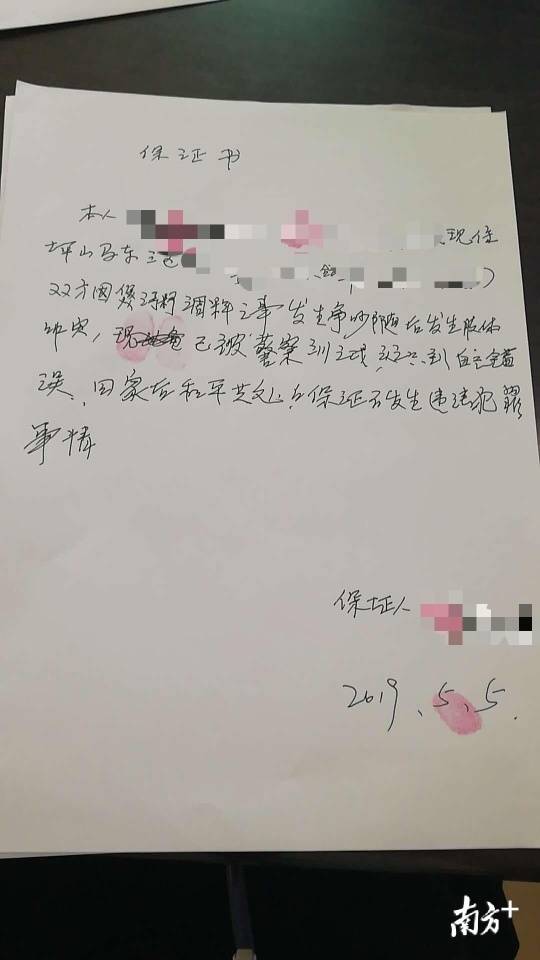 保证书
本人 现住
坪山马东三巷
双方因 调料之事发生争吵随后发生肢体
冲突，现 已被警察训诫，认识到自己错
误，回家后和平共处，保证不发生违法犯罪
事情
保证人
2019.5.5.
南方+